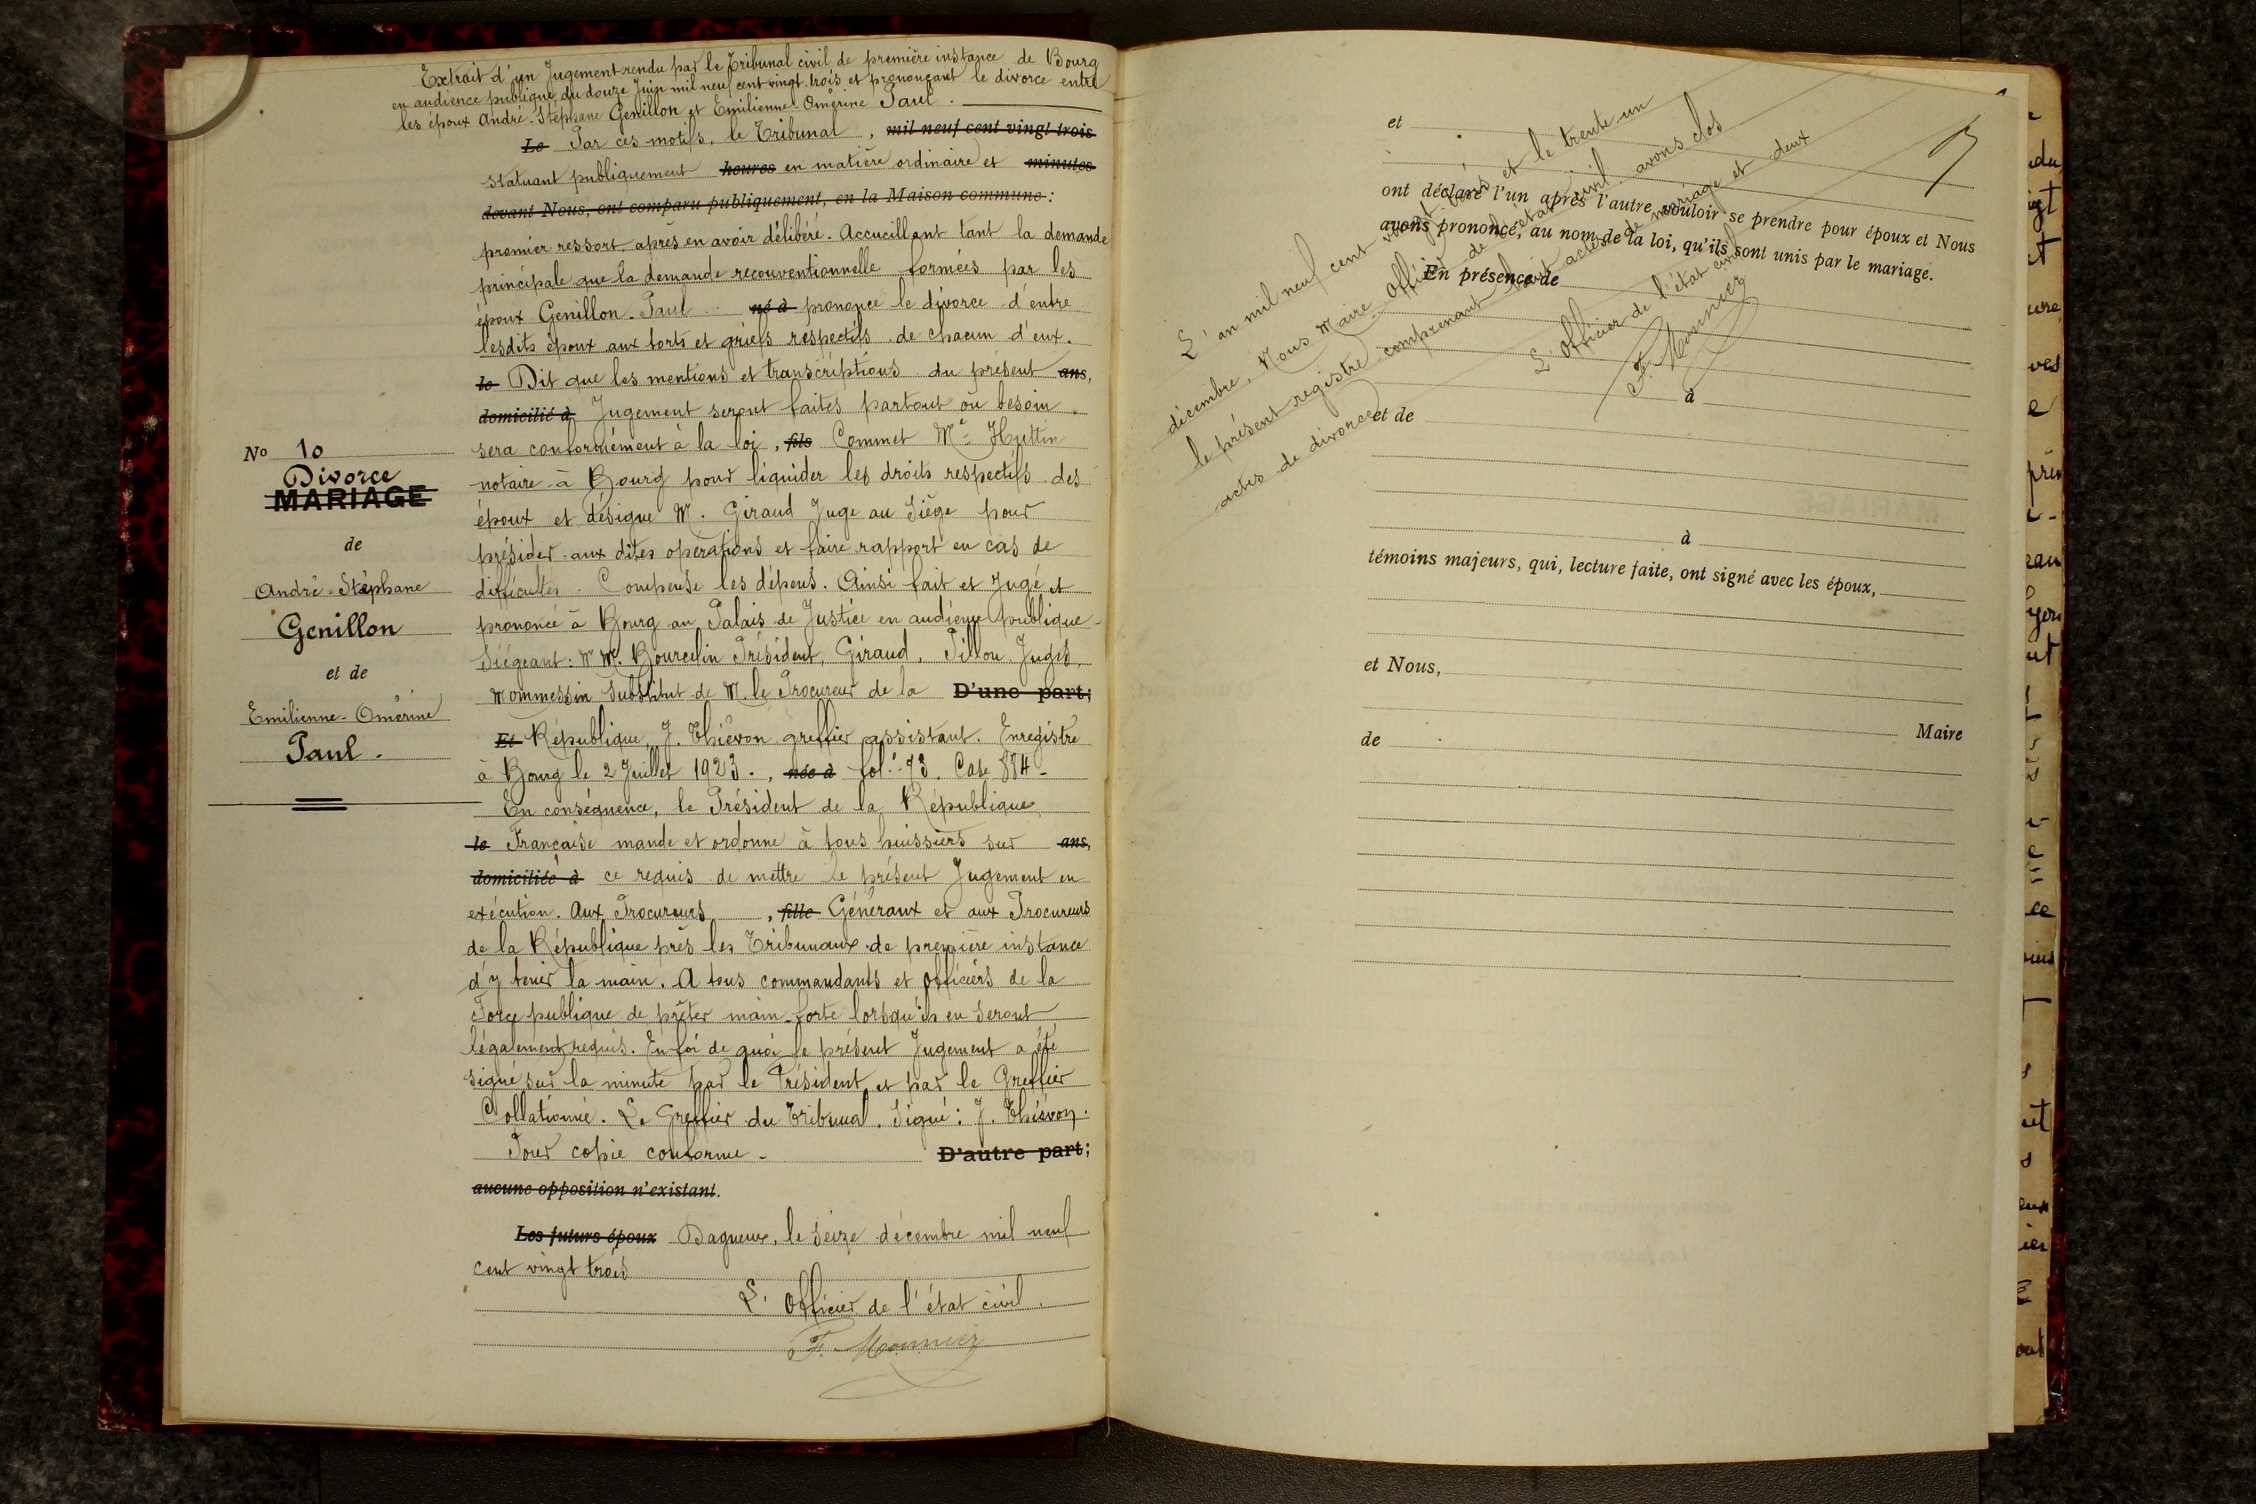 Extrait d'un Jugement rendu par le Tribunal civil de première instance de Bourg
en audience publique du douze Juin mil neuf cent vingt-trois et prononçant le divorce entre
les époux André-Stéphane Genillon et Emilienne-Omérine Paul.
Le Par ces motifs, le Tribunal, mil neuf cent vingt-trois
statuant publiquement heures en matière ordinaire et minutes
devant Nous, ont comparu publiquement, en la Maison commune :
premier ressort après en avoir délibéré. Accueillant tant la demande
principale que la demande reconventionnelle formées par les
époux Genillon-Paul né à prononce le divorce d'entre
lesdits époux aux torts et griefs respectifs de chacun d'eux.
le Dit que les mentions et transcriptions du présent ans,
domicilié à Jugement seront faites partout où besoin
sera conformément à la loi, fils Commet Me Huttin
notaire à Bourg pour liquider les droits respectifs des
époux et désigne M. Giraud Juge au Siège pour
présider aux dites opérations et faire rapport en cas de
difficultés. Compense les dépens. Ainsi fait et Jugé et
prononcé à Bourg au Palais de Justice en audience publique
Siégeant : MM. Bourcelin Président, Giraud, Pillon Juges,
Mommessin Substitut de M. le Procureur de la D'une part;
Et République, J. Thiévon greffier assistant. Enregistré
à Bourg le 2 Juillet 1923., née à fol. 73. Case 884-
En conséquence, le Président de la République
le Française mande et ordonne à tous huissiers sur ans,
domiciliée à ce requis de mettre le présent Jugement en
exécution. Aux Procureurs, fille Généraux et aux Procureurs
de la République près les Tribunaux de première instance
d'y tenir la main. A tous commandants et officiers de la
Force publique de prêter main-forte lorsqu'ils en seront
légalement requis. En foi de quoi le présent Jugement a été
signé sur la minute par le Président et par le Greffier
Collationné. Le Greffier du Tribunal. Signé : J. Thiévon.
Pour copie conforme - D'autre part;
aucune opposition n'existant.
Les futurs époux Dagneux, le seize décembre mil neuf
cent vingt trois
L'Officier de l'état civil.
F. Monnier
No 10
Divorce
MARIAGE
de
André-Stéphane
Genillon
et de
Emilienne-Omérine
Paul.
et
ont déclaré l'un après l'autre vouloir se prendre pour époux et Nous
avons prononcé, au nom de la loi, qu'ils sont unis par le mariage.
En présence de
à
et de
à
témoins majeurs, qui, lecture faite, ont signé avec les époux,
et Nous,
Maire
de
L'an mil neuf cent vingt-trois et le trente un
décembre, Nous Maire Officier de l'état civil avons clos
le présent registre comprenant huit actes de mariage et deux
actes de divorce
L'Officier de l'état civil
F. Monnier